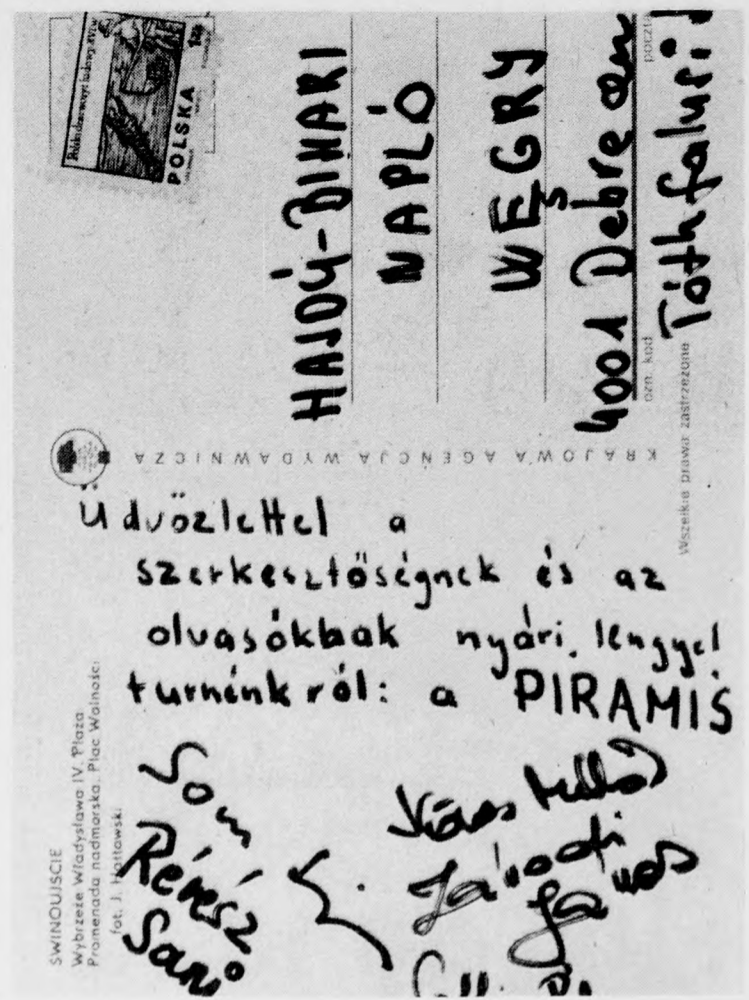 POLSKA
HAJDÚ-BIHARI
NAPLÓ
WĘGRY
4001 Debrecen
ozn. kod poczta
Tóthfalusi
KRAJOWA AGENCJA WYDAWNICZA
Wszelkie prawa zastrzeżone
Üdvözlettel a
szerkesztőségnek és az
olvasókbak nyári lengyel
turnénkról: a PIRAMIS
Som
Révész
Sani
Köves Miklós
Závodi
János
ŚWINOUJŚCIE
Wybrzeże Władysława IV. Plaża
Promenada nadmorska. Plac Wolności
fot. J.